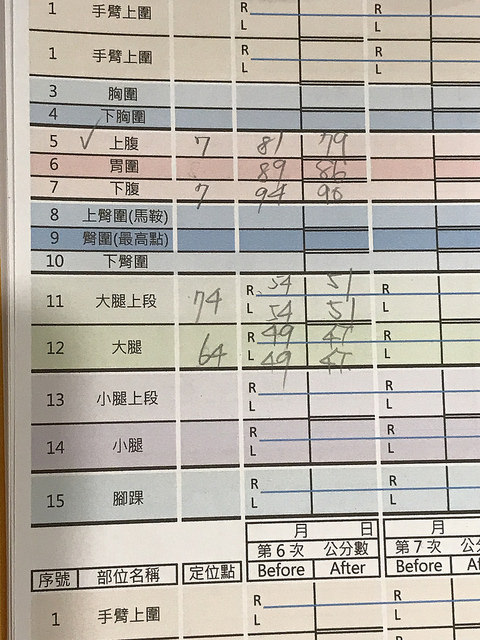 1 手臂上圍 R R
L L
1 手臂上圍 R R
L L
3 胸圍
4 下胸圍
5 ✓ 上腹 7 81 79
6 胃圍 89 86
7 下腹 7 94 90
8 上臀圍(馬鞍)
9 臀圍(最高點)
10 下臀圍
11 大腿上段 74 R 54 51 R
L 54 51 L
12 大腿 64 R 49 47 R
L 49 47 L
13 小腿上段 R R
L L
14 小腿 R R
L L
15 腳踝 R R
L L
月 日 月
第6次 公分數 第7次
序號 部位名稱 定位點 Before After Before
1 手臂上圍 R R
L